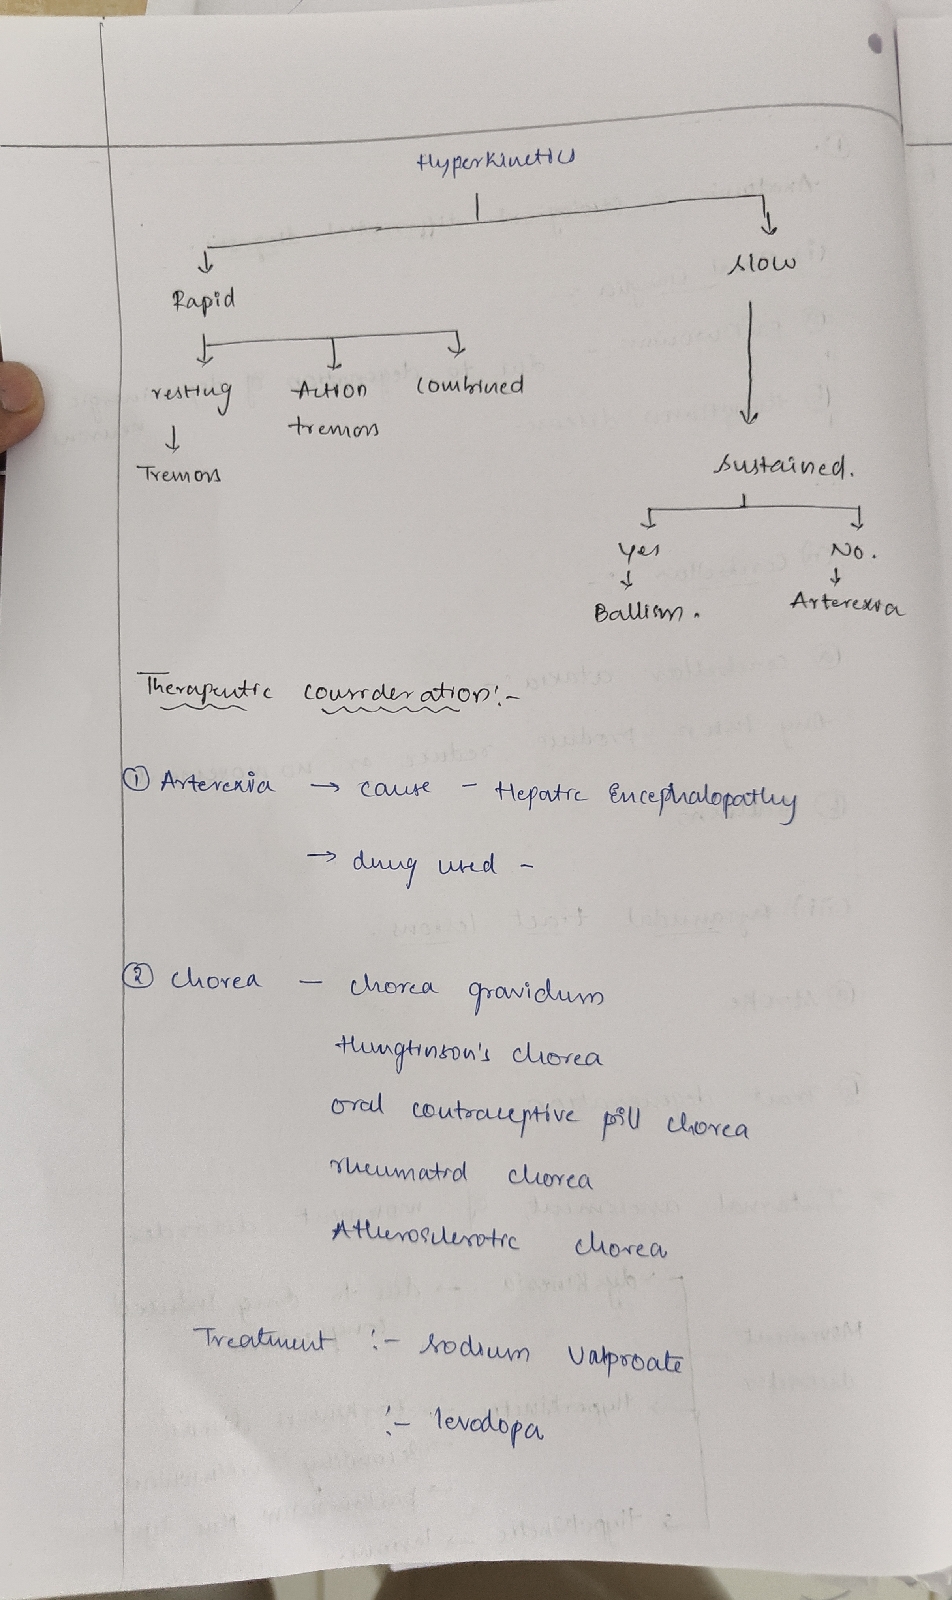 Hyperkinetics
Rapid
Slow
resting Action tremors Combined
Tremors
Sustained.
Yes No.
Ballism. Arterexia
Therapeutic consideration:-
① Arterexia → cause - Hepatic Encephalopathy
→ drug used -
② Chorea - chorea gravidum
Hungtinson's chorea
oral contraceptive pill chorea
rheumatid chorea
Atherosclerotic chorea
Treatment :- sodium valproate
:- levodopa